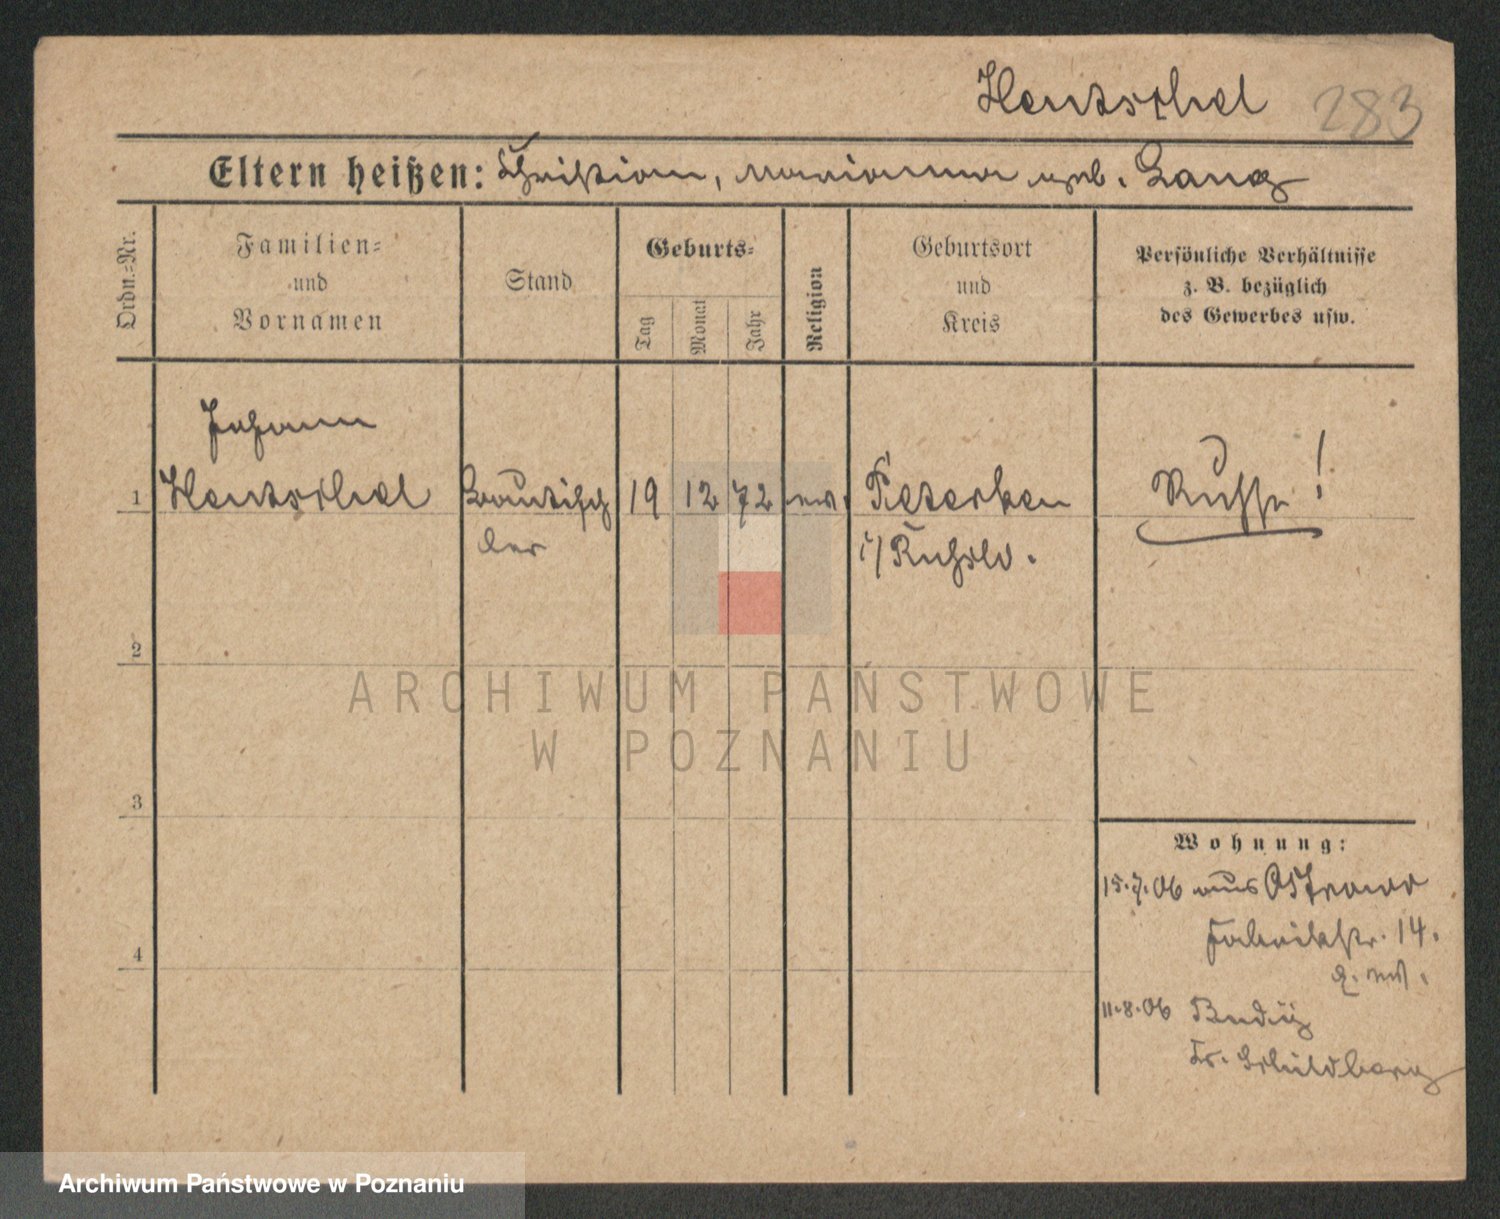 Hentschel 283
Eltern heißen: Christian, Marianna geb. Lang
Ordn.-Nr.
Familien-
und
Vornamen
Stand
Geburts-
Tag
Monat
Jahr
Religion
Geburtsort
und
Kreis
Persönliche Verhältnisse
z. B. bezüglich
des Gewerbes usw.
Johann
1 Hentschel Bautisch 19 12 72 ev. Peterken Russe!
ler i/Russld.
2
ARCHIWUM PAŃSTWOWE
W POZNANIU
3
Wohnung:
15.7.06 aus Ostrowo
Fabrikstr. 14.
4
11.8.06
Kr. Schildberg
Archiwum Państwowe w Poznaniu